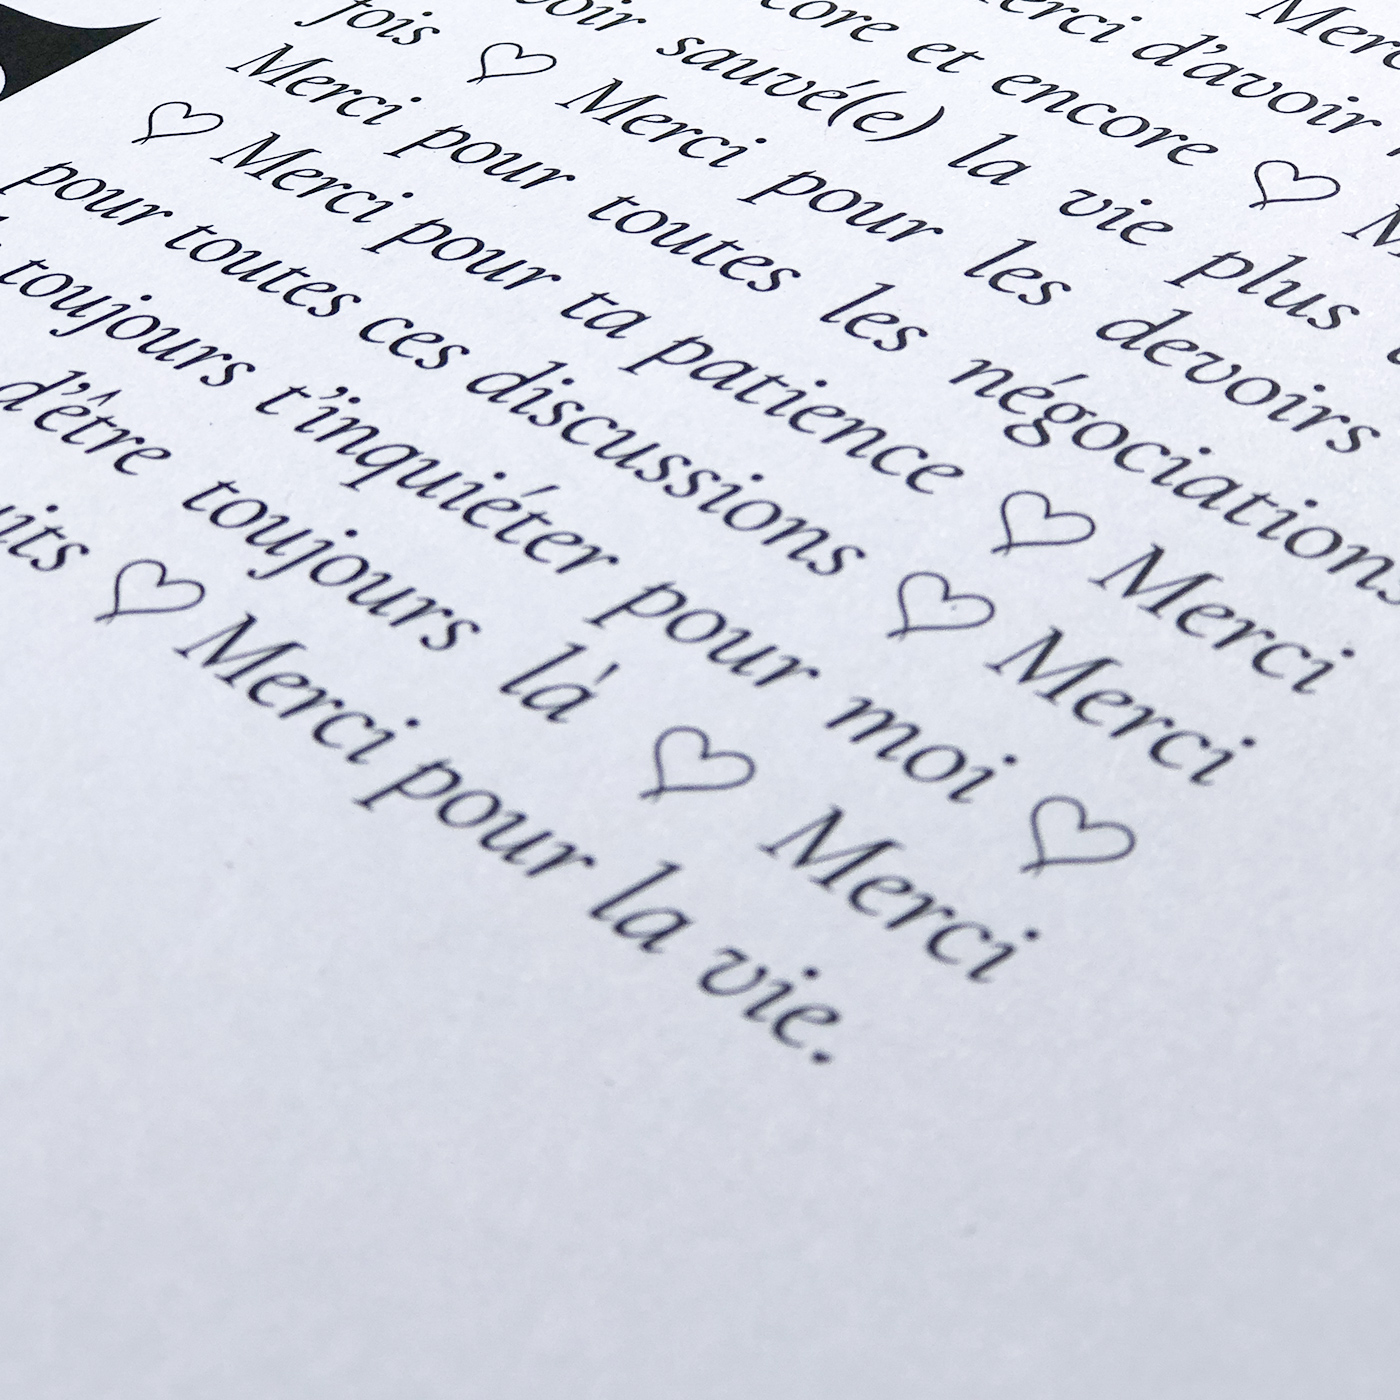 Merc
erci d'avoir
core et encore ♡ M
oir sauvé(e) la vie plus
fois ♡ Merci pour les devoirs
Merci pour toutes les négociations
♡ Merci pour ta patience ♡ Merci
pour toutes ces discussions ♡ Merci
toujours t'inquiéter pour moi ♡
d'être toujours là ♡ Merci
uits ♡ Merci pour la vie.